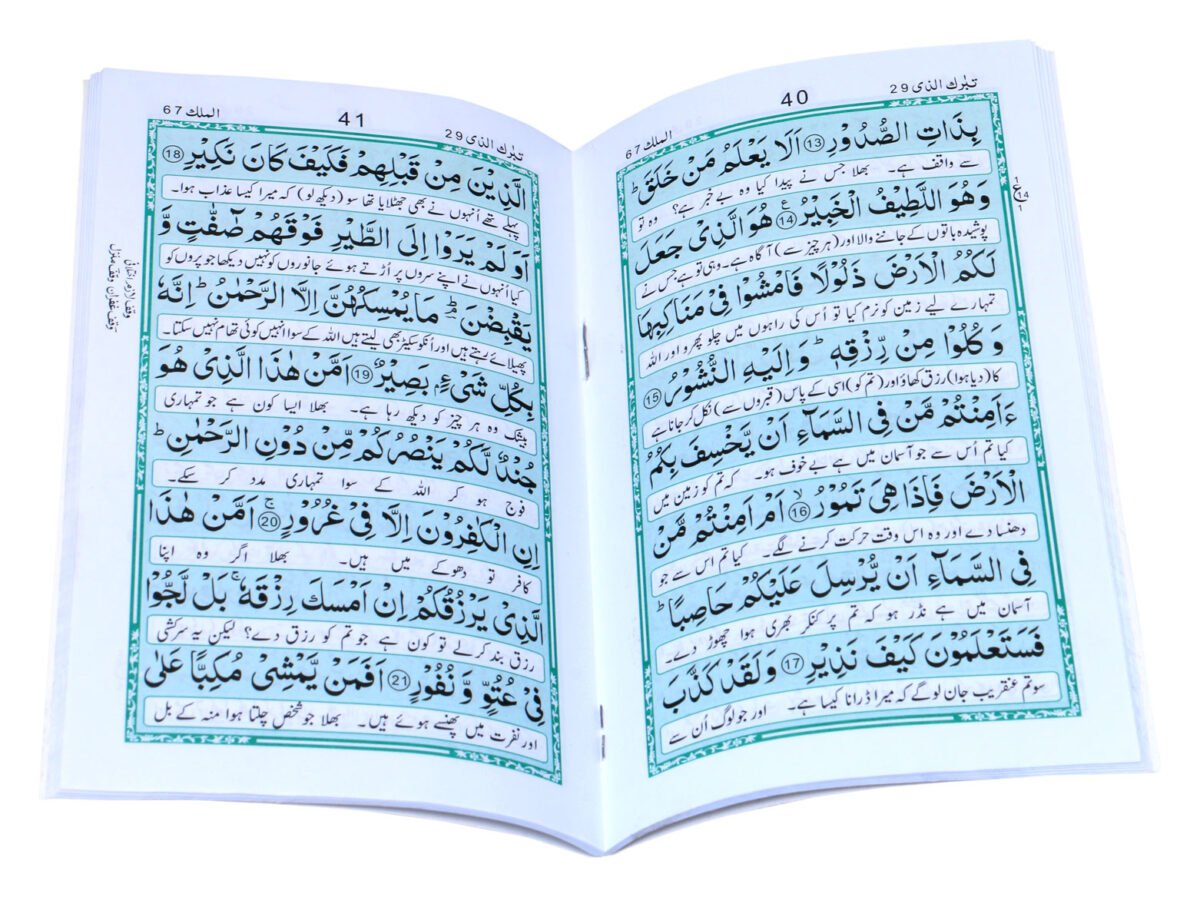 تبٰرك الذى 29
40
الملك 67
بِذَاتِ الصُّدُوْرِ ⑬ اَلَا يَعْلَمُ مَنْ خَلَقَ ؕ
سے واقف ہے۔ بھلا جس نے پیدا کیا وہ بے خبر ہے؟ وہ تو
وَهُوَ اللَّطِيْفُ الْخَبِيْرُ ⑭ هُوَ الَّذِىْ جَعَلَ
پوشیدہ باتوں کے جاننے والا اور (ہر چیز سے) آگاہ ہے۔ وہی تو ہے جس نے
لَكُمُ الْاَرْضَ ذَلُوْلًا فَامْشُوْا فِىْ مَنَاكِبِهَا
تمہارے لیے زمین کو نرم کیا تو اُس کی راہوں میں چلو پھرو اور اللہ
وَكُلُوْا مِنْ رِّزْقِهٖ ؕ وَاِلَيْهِ النُّشُوْرُ ⑮
کا (دیا ہوا) رزق کھاؤ اور (تم کو) اسی کے پاس (قبروں سے) نکل کر جانا ہے
ءَاَمِنْتُمْ مَّنْ فِى السَّمَآءِ اَنْ يَّخْسِفَ بِكُمُ
کیا تم اُس سے جو آسمان میں ہے بے خوف ہو۔ کہ تم کو زمین میں
الْاَرْضَ فَاِذَا هِىَ تَمُوْرُ ۙ⑯ اَمْ اَمِنْتُمْ مَّنْ
دھنسا دے اور وہ اس وقت حرکت کرنے لگے۔ کیا تم اس سے جو
فِى السَّمَآءِ اَنْ يُّرْسِلَ عَلَيْكُمْ حَاصِبًا ؕ
آسمان میں ہے نڈر ہو کہ تم پر کنکر بھری ہوا چھوڑ دے۔
فَسَتَعْلَمُوْنَ كَيْفَ نَذِيْرِ ⑰ وَلَقَدْ كَذَّبَ
سو تم عنقریب جان لو گے کہ میرا ڈرانا کیسا ہے۔ اور جو لوگ اُن سے
ع
14
1
تبٰرك الذى 29
41
الملك 67
الَّذِيْنَ مِنْ قَبْلِهِمْ فَكَيْفَ كَانَ نَكِيْرِ ⑱
پہلے تھے اُنہوں نے بھی جھٹلایا تھا سو (دیکھ لو) کہ میرا کیسا عذاب ہوا۔
اَوَلَمْ يَرَوْا اِلَى الطَّيْرِ فَوْقَهُمْ صٰٓفّٰتٍ وَّ
کیا اُنہوں نے اپنے سروں پر اُڑتے ہوئے جانوروں کو نہیں دیکھا جو پروں کو
يَقْبِضْنَ ؕ مَا يُمْسِكُهُنَّ اِلَّا الرَّحْمٰنُ ؕ اِنَّهٗ
پھیلائے رہتے ہیں اور اُنکو سکیڑ بھی لیتے ہیں اللہ کے سوا انہیں کوئی تھام نہیں سکتا۔
بِكُلِّ شَىْءٍۢ بَصِيْرٌ ⑲ اَمَّنْ هٰذَا الَّذِىْ هُوَ
بیشک وہ ہر چیز کو دیکھ رہا ہے۔ بھلا ایسا کون ہے جو تمہاری
جُنْدٌ لَّكُمْ يَنْصُرُكُمْ مِّنْ دُوْنِ الرَّحْمٰنِ ؕ
فوج ہو کر اللہ کے سوا تمہاری مدد کر سکے۔
اِنِ الْكٰفِرُوْنَ اِلَّا فِىْ غُرُوْرٍ ۚ⑳ اَمَّنْ هٰذَا
کافر تو دھوکے میں ہیں۔ بھلا اگر وہ اپنا
الَّذِىْ يَرْزُقُكُمْ اِنْ اَمْسَكَ رِزْقَهٗ ۚ بَلْ لَّجُّوْا
رزق بند کرلے تو کون ہے جو تم کو رزق دے؟ لیکن یہ سرکشی
فِىْ عُتُوٍّ وَّنُفُوْرٍ ㉑ اَفَمَنْ يَّمْشِىْ مُكِبًّا عَلٰى
اور نفرت میں پھنسے ہوئے ہیں۔ بھلا جو شخص چلتا ہوا منہ کے بل
وقف غفران وقف منزل